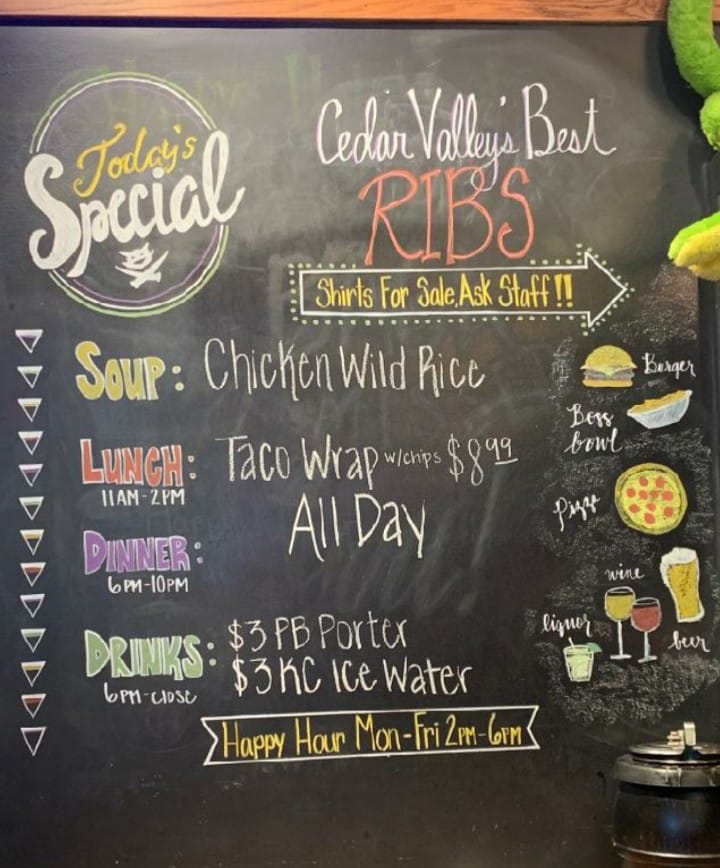 Today's
Special
Cedar Valley's Best
RIBS
Shirts For Sale, Ask Staff!!
SOUP: Chicken Wild Rice
LUNCH: Taco Wrap w/chips $8.99
11AM-2PM
All Day
DINNER:
6PM-10PM
DRINKS: $3 PB Porter
$3 KC Ice Water
6PM-close
Happy Hour Mon-Fri 2PM-6PM
Burger
Boss
bowl
Pizza
wine
liquor
beer